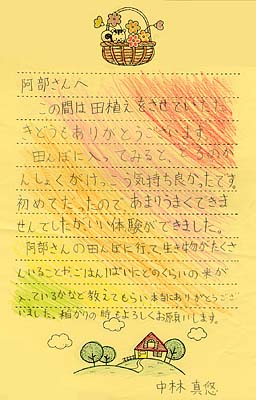 阿部さんへ
この間は田植えをさせていただ
きどうもありがとうございます。
田んぼに入ってみると、どろのか
んしょくがけっこう気持ち良かったです。
初めてだったのであまりうまくできま
せんでしたがいい体験ができました。
阿部さんの田んぼに行って生き物がたくさ
んいることやごはん1ぱいにどのくらいの米が
入っているかなど教えてもらい本当にありがとうござ
いました。稲かりの時もよろしくお願いします。
中林真悠